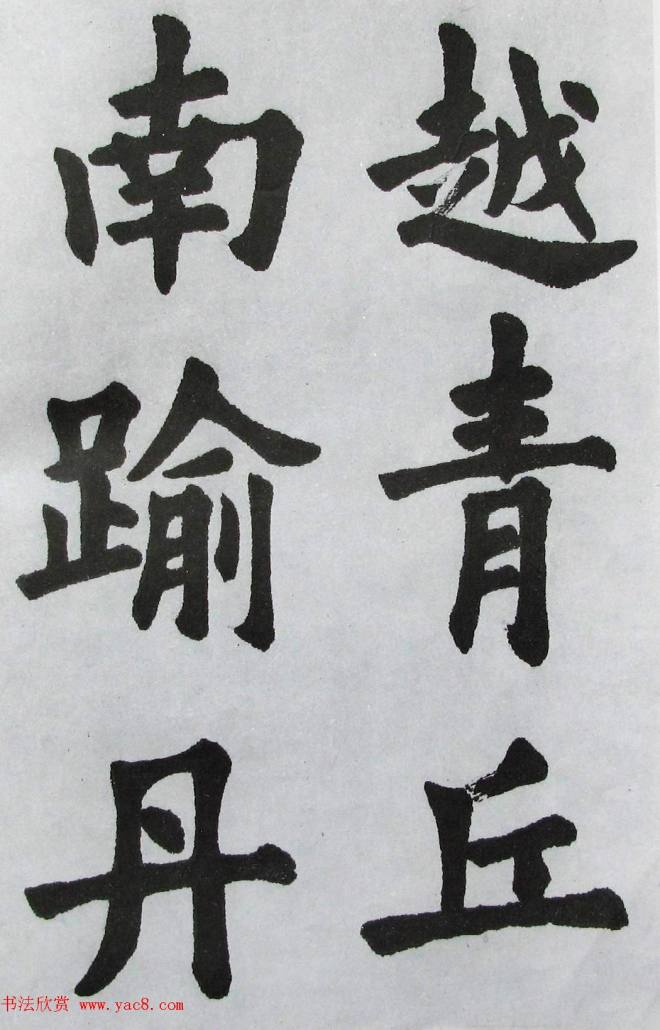 越青丘
南踰丹
书法欣赏 www.yac8.com